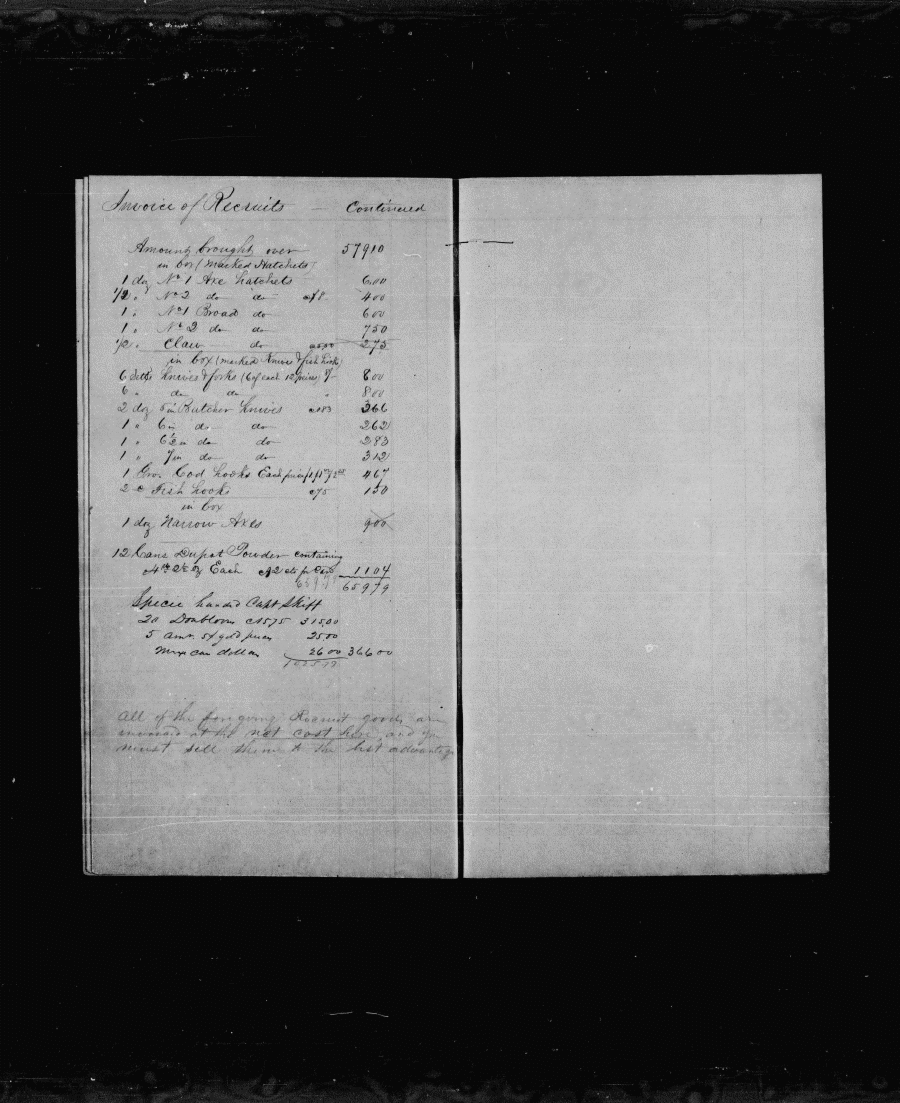 Invoice of Recruits — Continued
Amount brought over 57910
in box (marked Hatchets)
1 doz No 1 Axe hatchets 6.00
1/2 " No 2 do do a$8 400
1 " No 1 Broad do 600
1 " No 2 do do 750
1/2 " Claw do a550 275
in box (marked Knives & fish hooks)
6 Setts Knives & forks (6 of each 12 pieces) 8/- 800
6 " do do " 800
2 doz 5 in Butcher Knives a183 366
1 " 6 in do do 262
1 " 6 1/2 in do do 283
1 " 7 in do do 312
1 Gro. Cod hooks Each 467
2 " Fish hooks a75 150
in box
1 doz Narrow Axes 900
12 Cans Dupot Powder containing
Each 92 cts per Can 1104
65979 65979
Specie handed Capt Skiff
20 Doubloons a1575 315.00
5 amr. 5$ gold pieces 2500
Mexican dollars 2600 36600
102579
All of the foregoing Recruit goods are
invoiced at the net cost here and you
must sell them to the best advantage